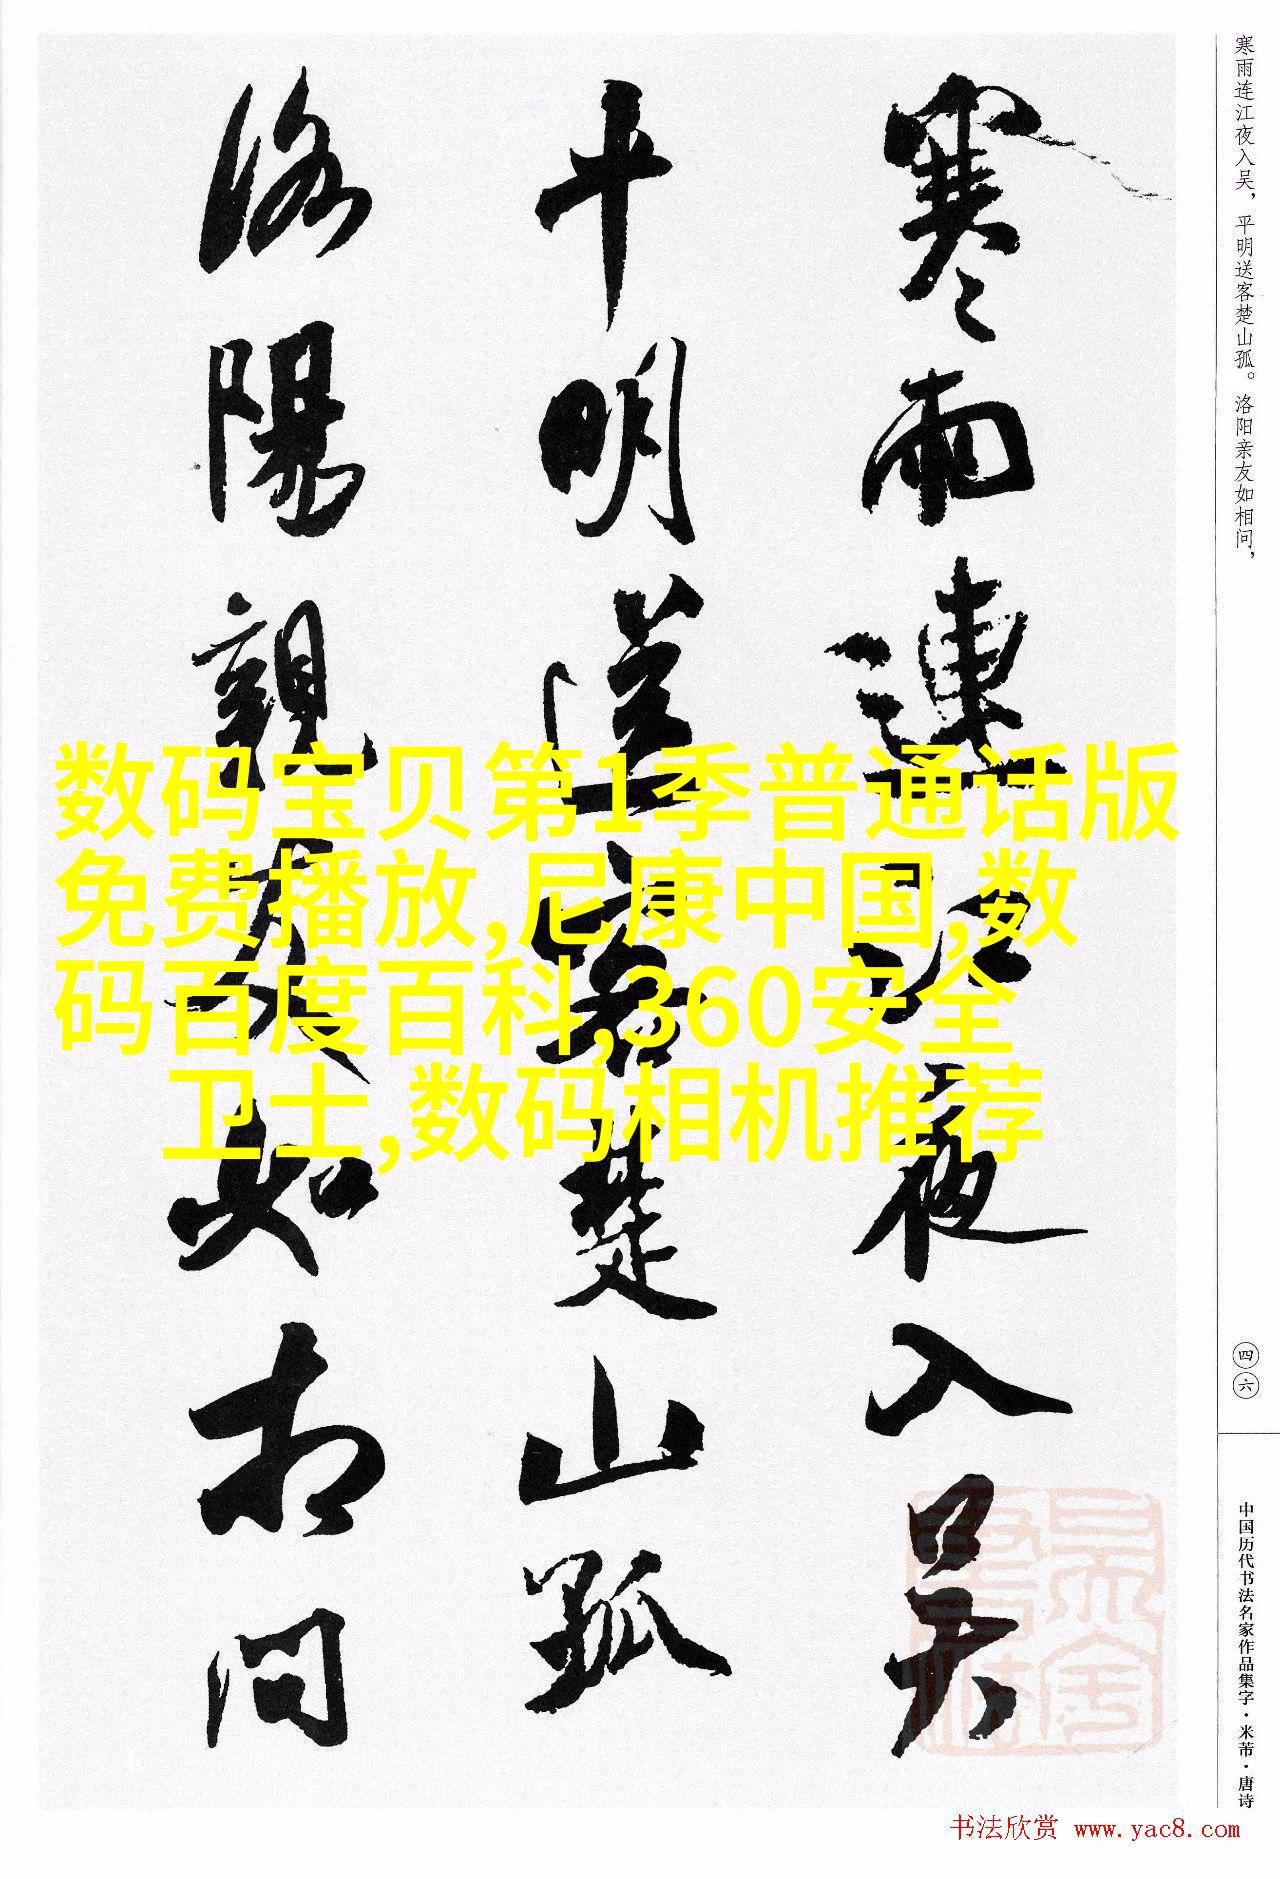 寒雨连江夜入吴，平明送客楚山孤。洛阳亲友如相问，
四六
中国历代书法名家作品集字·米芾·唐诗
寒雨連江夜入吴
平明送客楚山孤
洛陽親友如相问
数码宝贝第1季普通话版
免费播放,尼康中国,数
码百度百科,360安全
卫士,数码相机推荐
书法欣赏 www.yac8.com